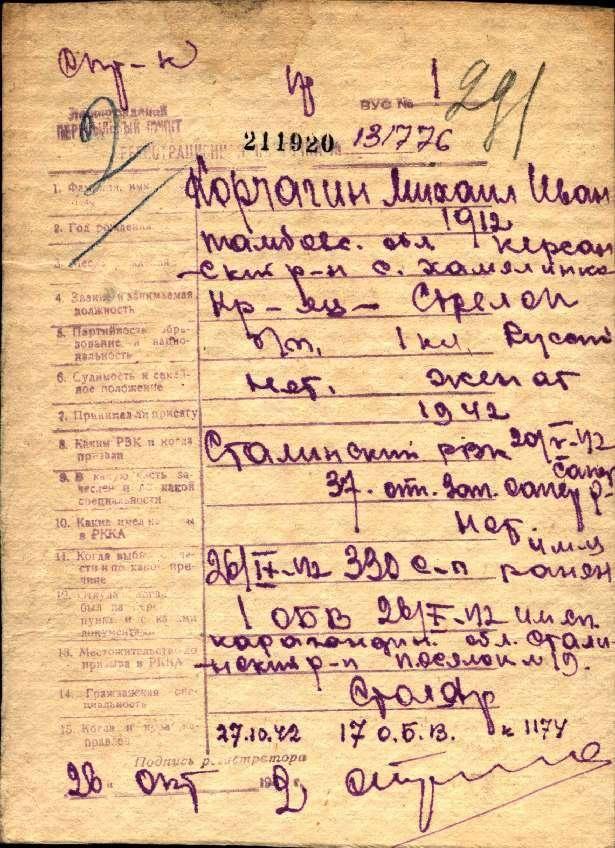 Спр-к
1
ВУС №
291
ПЕРЕСЫЛЬНЫЙ ПУНКТ
211920 131776
1. Фамилия, имя Корчагин Михаил Иван
2. Год рождения 1912
тамбовс. обл керсан
3. -ский р-н с. Хамялинка
4. Звание и занимаемая должность Кр-яц - Стрелок
5. Партийность, образование и национальность б/п. 1 кл. Русский
6. Судимость и семейное положение Нет. женат
7. Принимал ли присягу 1942
8. Каким РВК и когда призван Сталинский рвк 20/V-42
9. В какую часть зачислен и по какой специальности 37. отп. зап. сапер
10. Какие имел в РККА Нет
11. Когда выбыл из части и по какой причине 26/IX-42 330 с-п ранен
1 ОБВ 26/X-42
13. Местожительство до призыва в РККА карагандин. обл. Стали-
-нский р-н поселок №19.
14. Гражданская специальность Столяр
15. Когда и куда направлен 27.10.42 17 О.Б.В. к 1174
Подпись регистратора
26 окт 194 2 г.